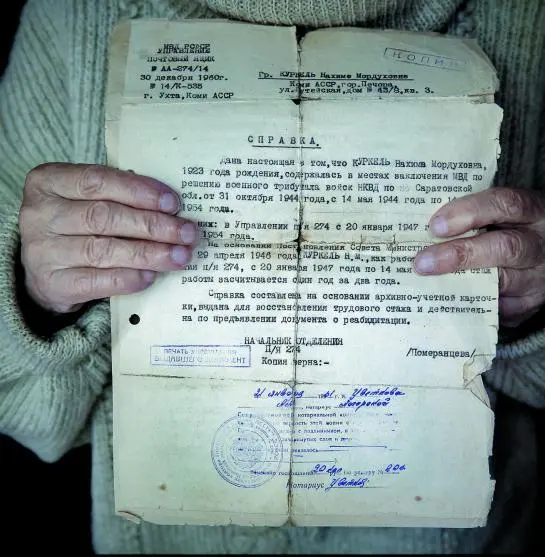 МВД РСФСР
УПРАВЛЕНИЕ
ПОЧТОВЫЙ ЯЩИК
№ АА-274/14
30 декабря 1960г.
№ 14/К-535
г. Ухта, Коми АССР
КОПИЯ
Гр. КУРКЕЛЬ Нахиме Мордуховне
Коми АССР, гор. Печора,
ул. дом № 43/8, кв. 3.
СПРАВКА.
Дана настоящая в том, что КУРКЕЛЬ Нахима Мордуховна,
1923 года рождения, содержалась в местах заключения МВД по
решению военного трибунала войск НКВД по Саратовской
обл. от 31 октября 1944 года, с 14 мая 1944 года по 14
1954 года.
в Управлении п/я 274 с 20 января 1947
1954 года.
На основании Постановления Совета Министров
29 апреля 1946 года КУРКЕЛЬ Н.М., как
п/я 274, с 20 января 1947 года по 14
работы засчитывается один год за два года.
Справка составлена на основании архивно-учетной карточ-
ки, выдана для восстановления трудового стажа и действитель-
на по предъявлении документа о реабилитации.
НАЧАЛЬНИК ОТДЕЛЕНИЯ
П/Я 274
/Померанцева/
Копия верна:-
ПЕЧАТЬ
ДОКУМЕНТ
21 января
нотариус
верность этой копии с
с подлинником, в
слов и
оказалось
госпошлины по реестру №
Нотариус